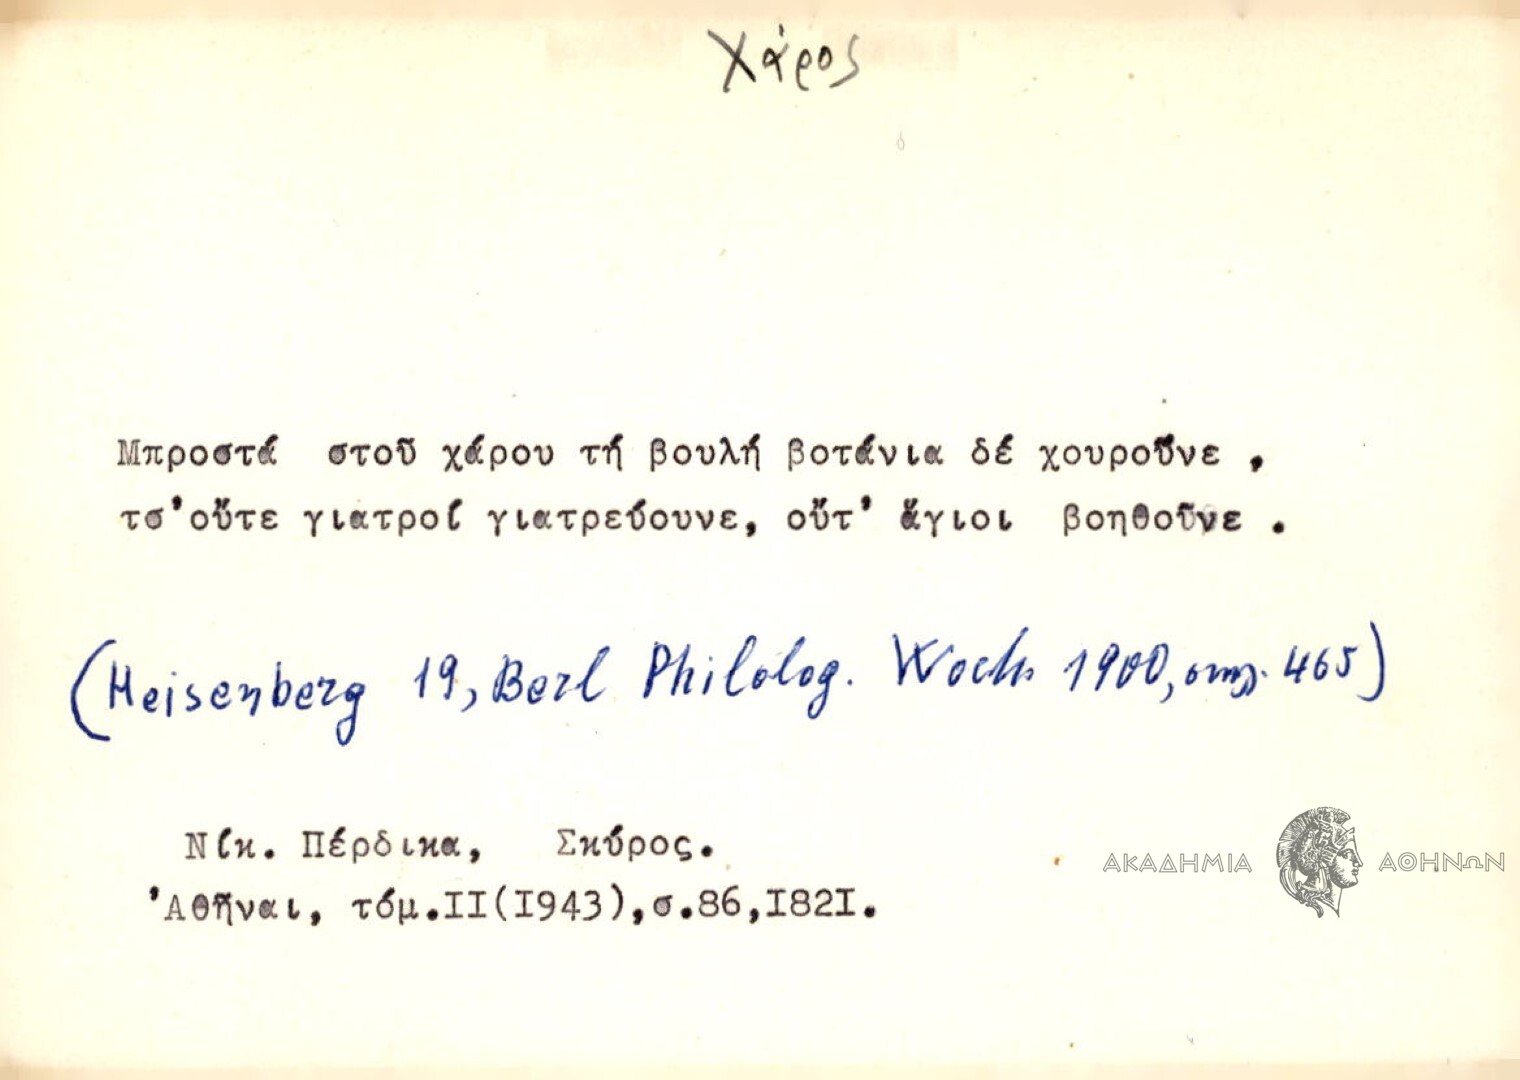 Χάρος
Μπροστά στοῦ χάρου τή βουλή βοτάνια δέ χουροῦνε ,
τσ'οὔτε γιατροί γιατρεύουνε, οὔτ' ἅγιοι βοηθοῦνε .
(Heisenberg 19, Berl Philolog. Woch. 1900, σημ. 465)
Νίκ. Πέρδικα, Σκύρος.
'Αθῆναι, τόμ.ΙΙ(Ι943),σ.86,Ι82Ι.
ΑΚΑΔΗΜΙΑ ΑΘΗΝΩΝ